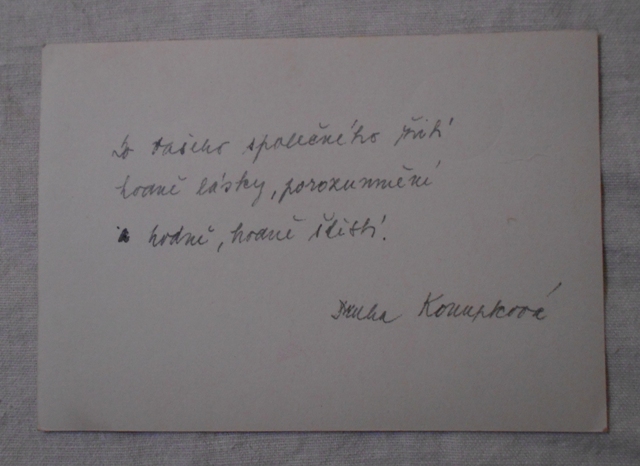 Do Vašeho společného žití
hodně lásky, porozumnění
a hodně, hodně štěstí.
Konupková